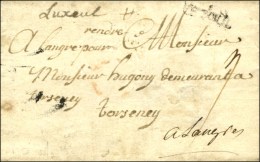 Luxeul
rendre
A Langre pour Monsieur
Monsieur hugony demeurant a
torseney
torseney
a Langres